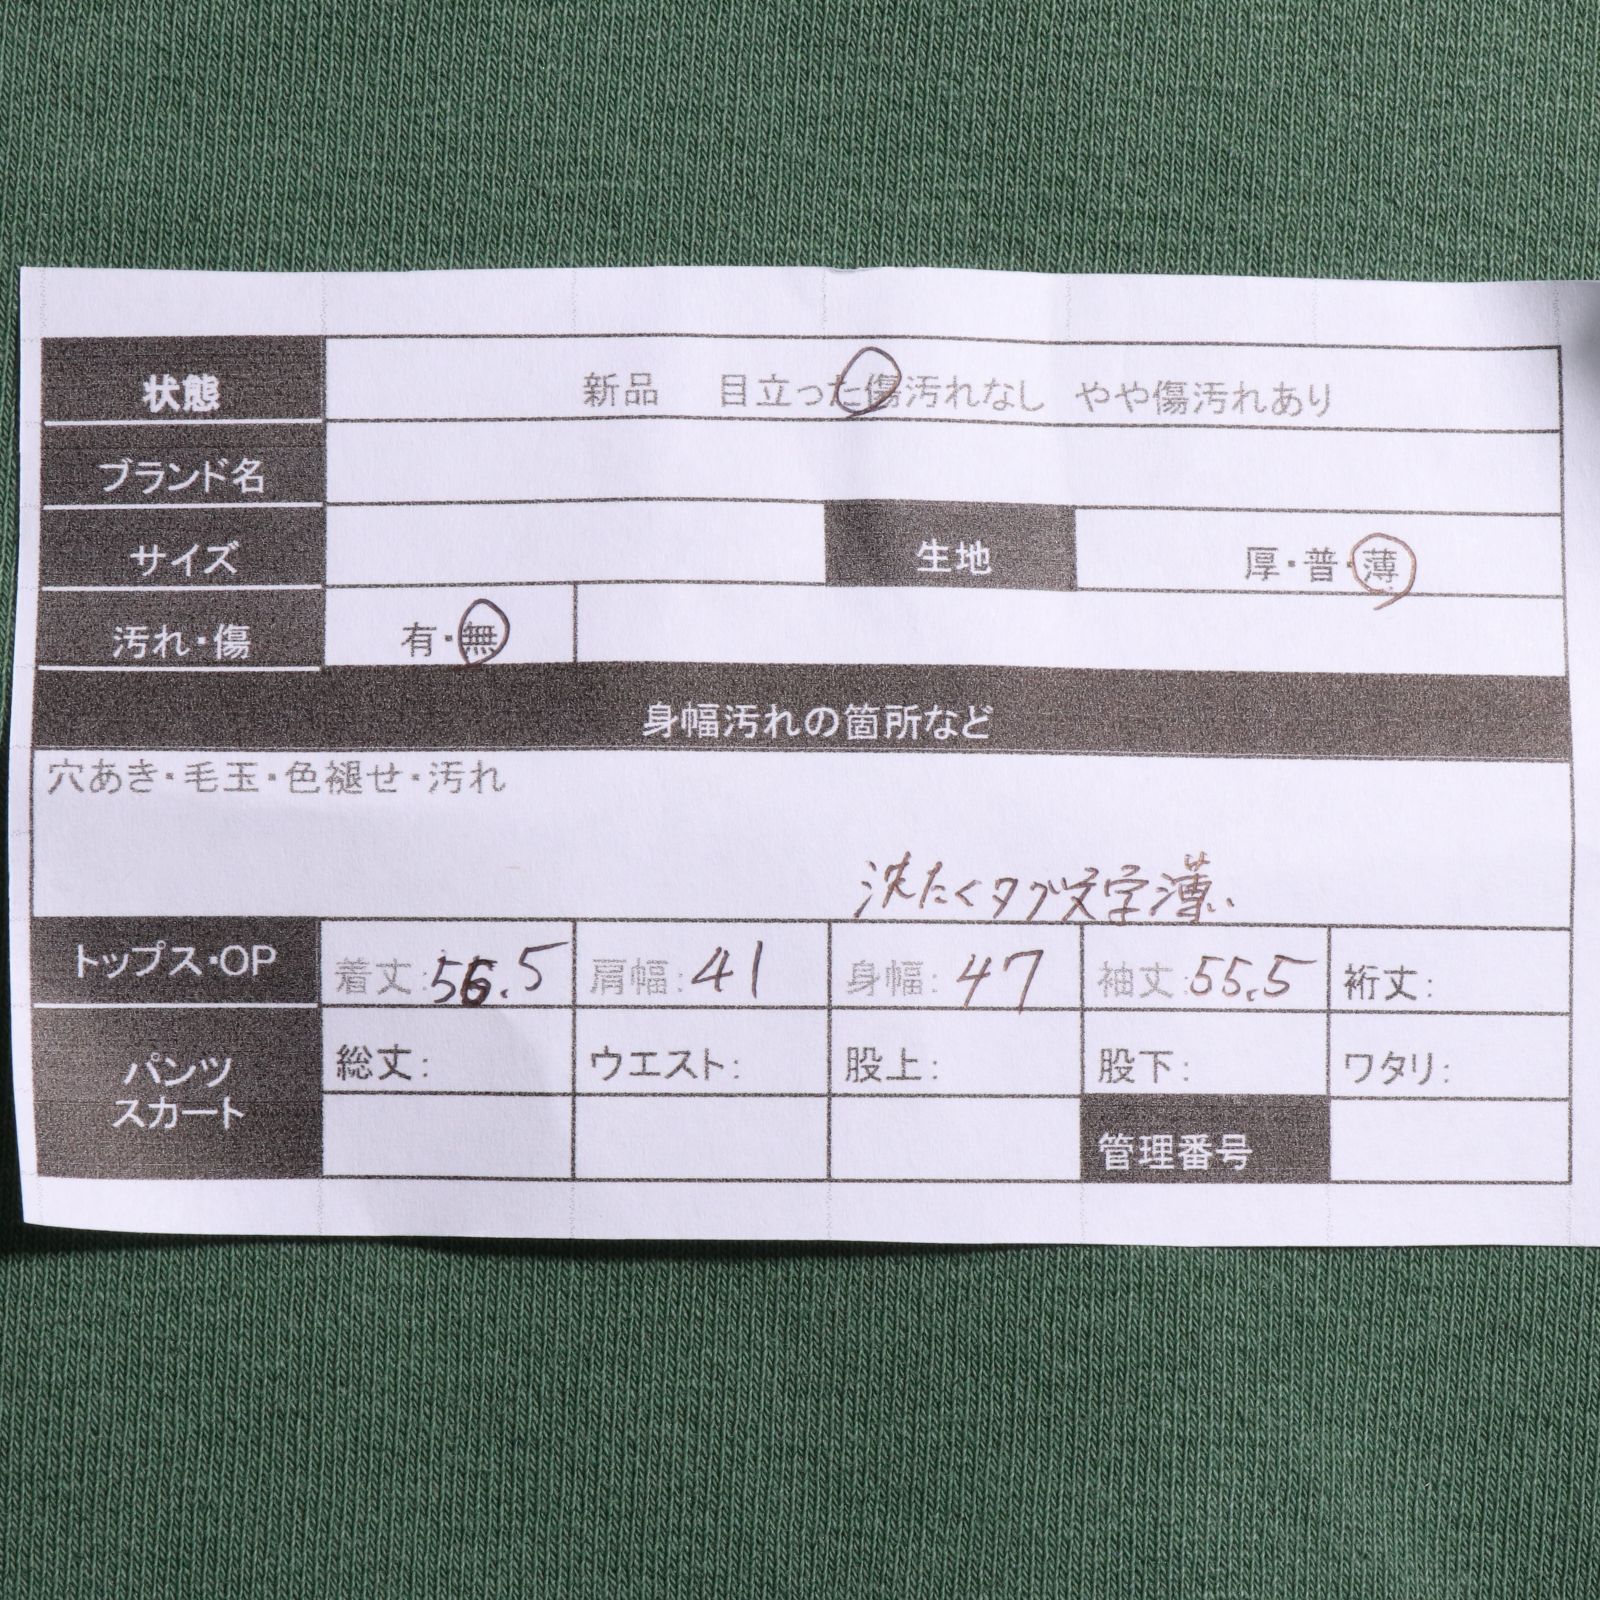 状態 新品 目立った傷汚れなし やや傷汚れあり
ブランド名
サイズ 生地 厚・普・薄
汚れ・傷 有・無
身幅汚れの箇所など
穴あき・毛玉・色褪せ・汚れ
洗たくタグ文字薄い
トップス・OP 着丈:56.5 肩幅:41 身幅:47 袖丈:55.5 裄丈:
パンツ 総丈: ウエスト: 股上: 股下: ワタリ:
スカート
管理番号